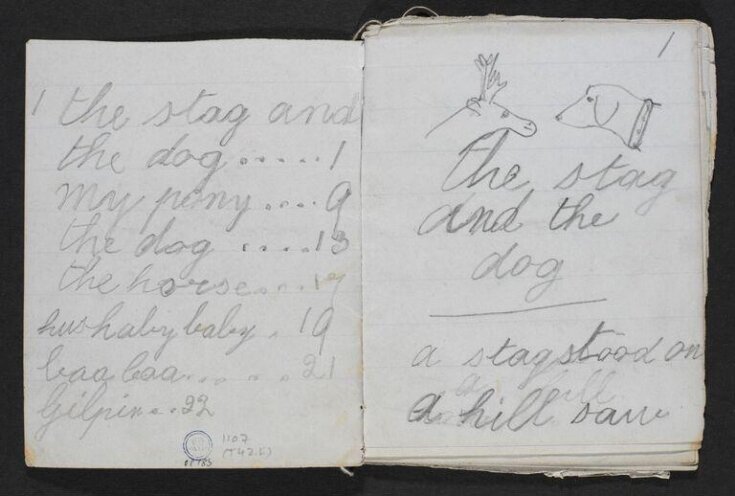 1 the stag and
the dog ..... 1
my pony .... 9
the dog .... 13
the horse ... 17
hushabybaby . 19
baa baa ..... 21
Gilpin .. 22
1107
1
the stag
and the
dog
a stag stood on
a hill saw